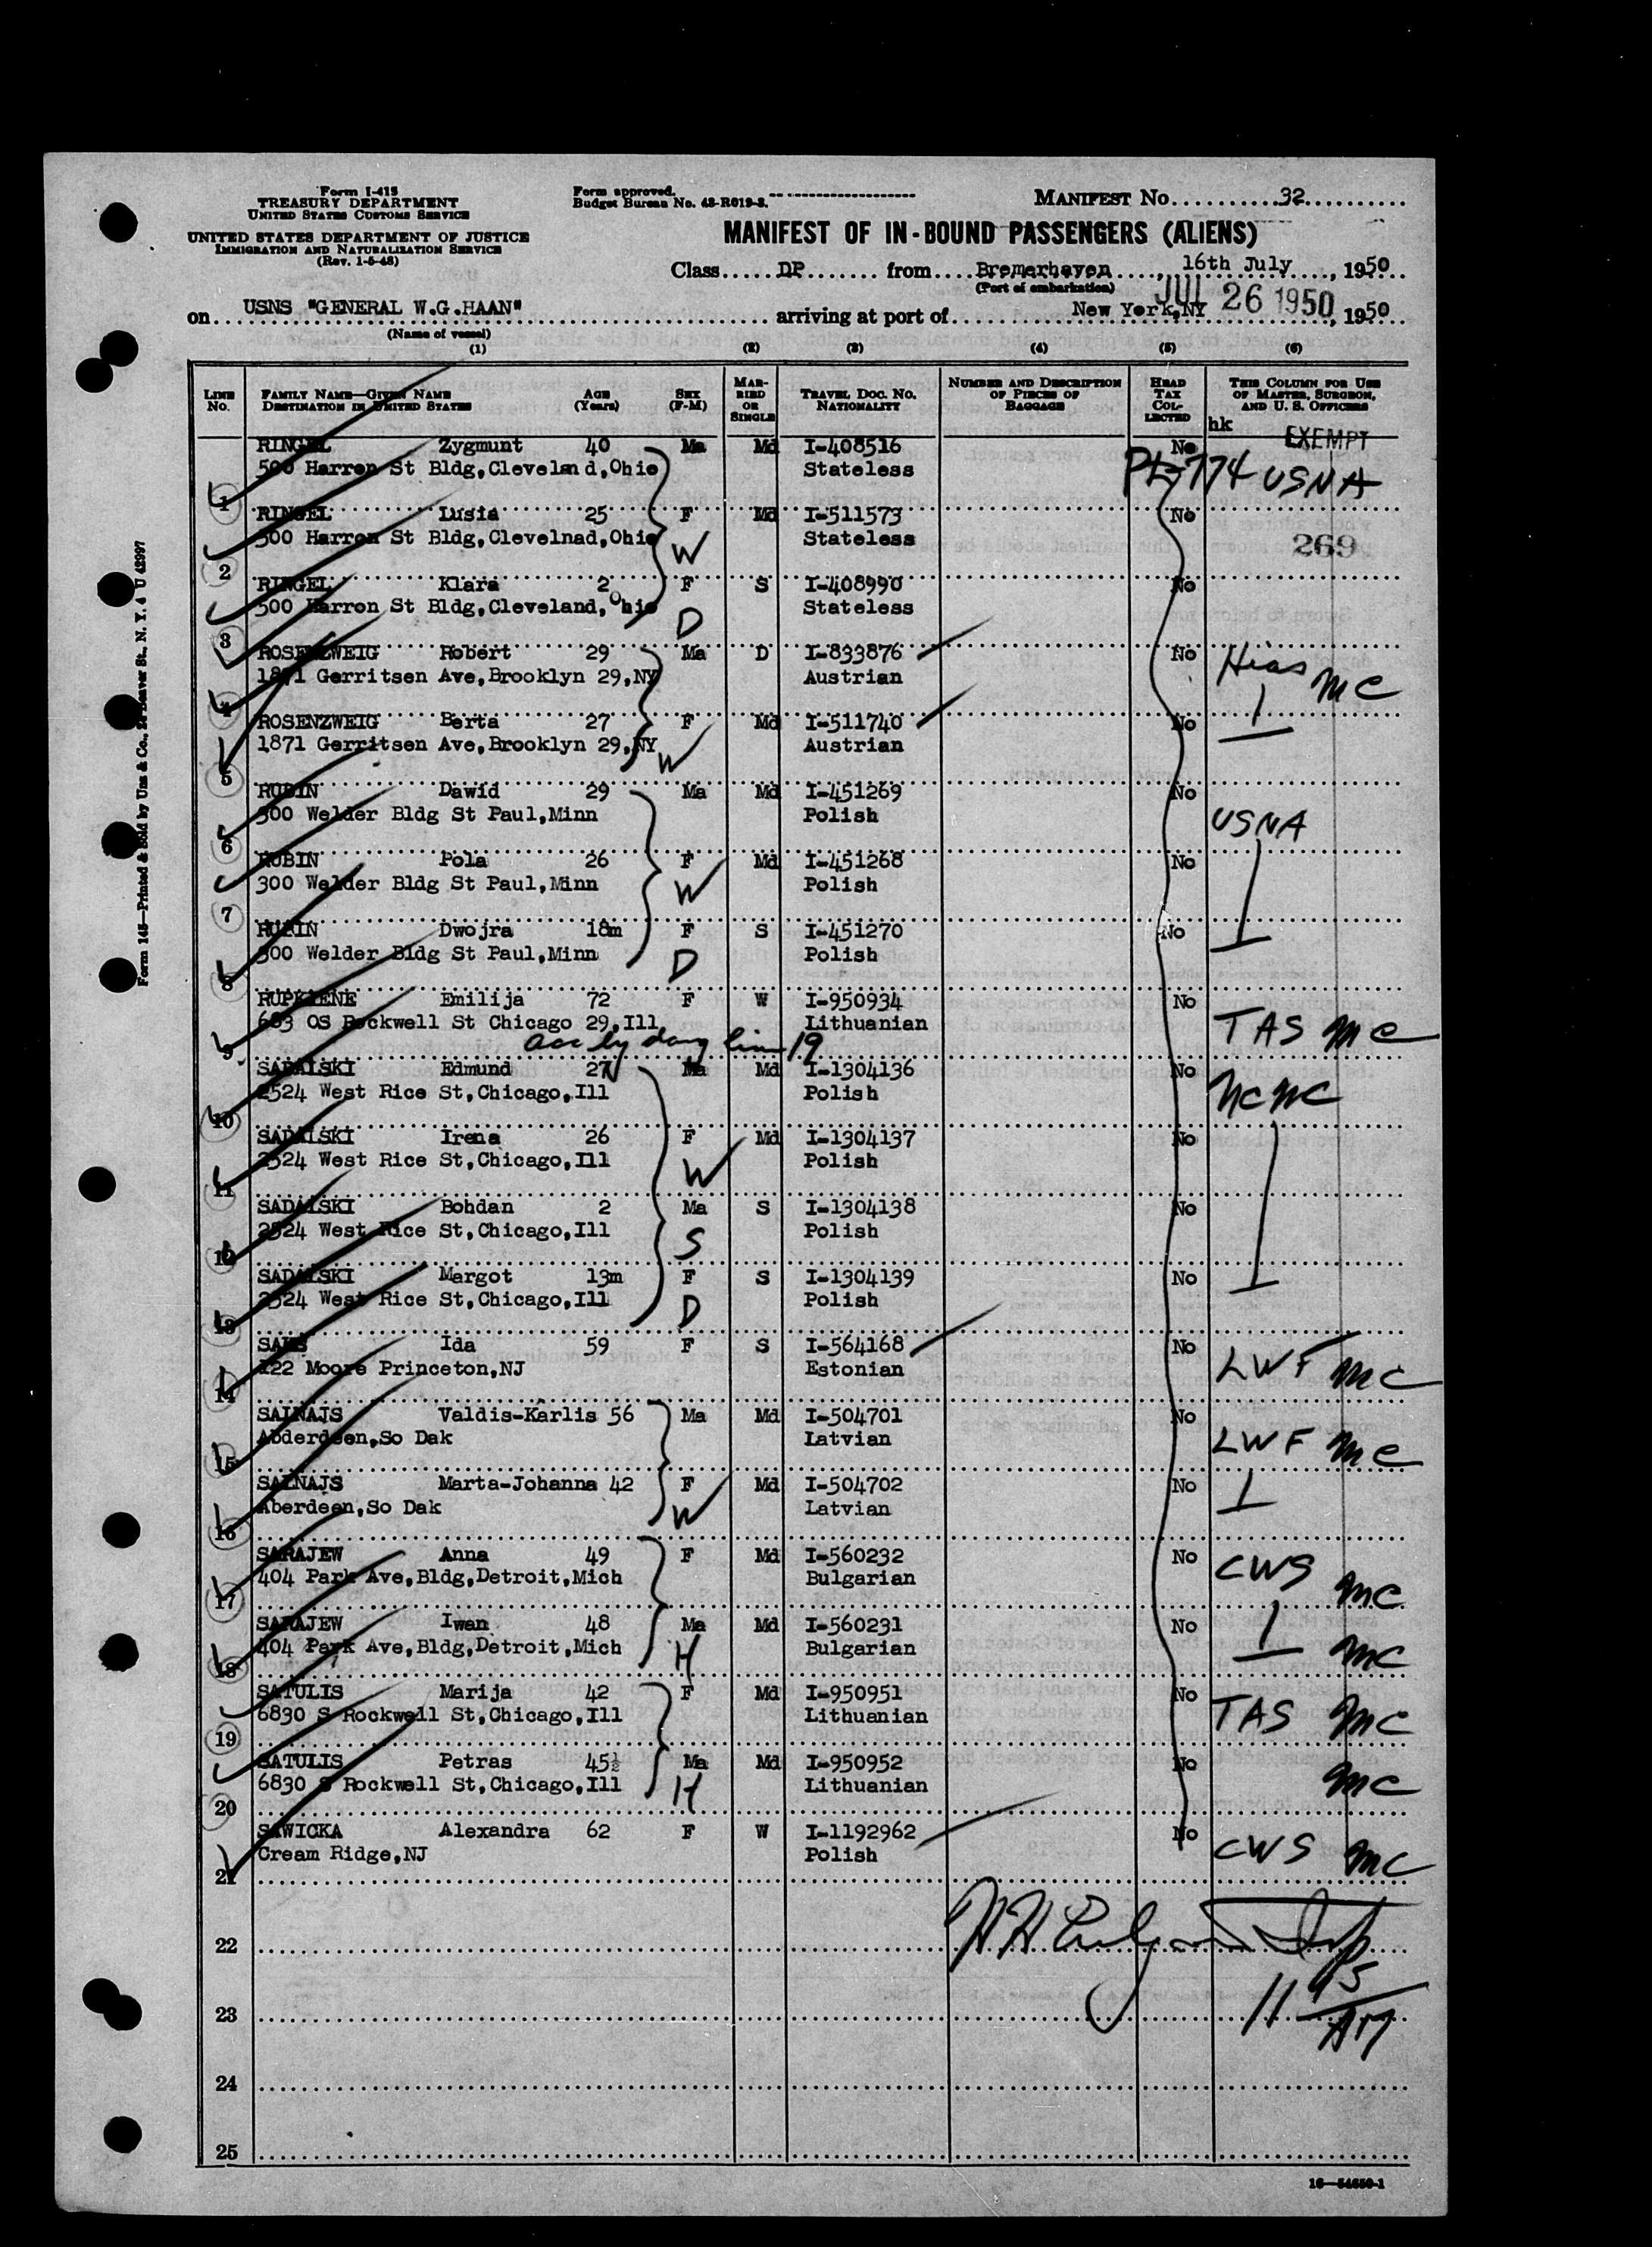 Form I-415
TREASURY DEPARTMENT
UNITED STATES CUSTOMS SERVICE
UNITED STATES DEPARTMENT OF JUSTICE
IMMIGRATION AND NATURALIZATION SERVICE
(Rev. 1-5-48)
Form approved.
Budget Bureau No. 43-R019-3.
MANIFEST No. 32
MANIFEST OF IN-BOUND PASSENGERS (ALIENS)
Class DP from Bremerhaven, 16th July, 1950
(Port of embarkation)
on USNS "GENERAL W.G.HAAN" arriving at port of New York,NY JUL 26 1950, 1950
(Name of vessel)
(1) (2) (3) (4) (5) (6)
LINE No. FAMILY NAME—GIVEN NAME DESTINATION IN UNITED STATES AGE (Years) SEX (F-M) MARRIED OR SINGLE TRAVEL DOC. NO. NATIONALITY NUMBER AND DESCRIPTION OF PIECES OF BAGGAGE HEAD TAX COLLECTED THIS COLUMN FOR USE OF MASTER, SURGEON, AND U. S. OFFICERS
hk EXEMPT
RINGEL Zygmunt 40 Ma Md I-408516 No
500 Harron St Bldg,Cleveland,Ohio Stateless PL-774 USNA
1
RINGEL Lusia 25 F Md I-511573 No
500 Harron St Bldg,Clevelnad,Ohio W Stateless 269
2
RINGEL Klara 2 F S I-408990 No
500 Harron St Bldg,Cleveland,Ohio D Stateless
3
ROSENZWEIG Robert 29 Ma D I-833876 No Hias MC
1871 Gerritsen Ave,Brooklyn 29,NY Austrian
4
ROSENZWEIG Berta 27 F Md I-511740 No
1871 Gerritsen Ave,Brooklyn 29,NY W Austrian
5
RUBIN Dawid 29 Ma Md I-451269 No
300 Welder Bldg St Paul,Minn Polish USNA
6
RUBIN Pola 26 F Md I-451268 No
300 Welder Bldg St Paul,Minn W Polish
7
RUBIN Dwojra 18m F S I-451270 No
300 Welder Bldg St Paul,Minn D Polish
8
RUPKIENE Emilija 72 F W I-950934 No
683 OS Rockwell St Chicago 29,Ill Lithuanian TAS MC
acc by daug line 19
9
SADALSKI Edmund 27 Ma Md I-1304136 No
2524 West Rice St,Chicago,Ill Polish NCWC
10
SADALSKI Irena 26 F Md I-1304137 No
2524 West Rice St,Chicago,Ill W Polish
11
SADALSKI Bohdan 2 Ma S I-1304138 No
2524 West Rice St,Chicago,Ill S Polish
12
SADALSKI Margot 13m F S I-1304139 No
2524 West Rice St,Chicago,Ill D Polish
13
Ida 59 F S I-564168 No
122 Moore Princeton,NJ Estonian LWF MC
14
SAINAJS Valdis-Karlis 56 Ma Md I-504701 No
Abderdeen,So Dak Latvian LWF MC
15
SAINAJS Marta-Johanna 42 F Md I-504702 No
Aberdeen,So Dak W Latvian
16
SARAJEW Anna 49 F Md I-560232 No CWS
404 Park Ave,Bldg,Detroit,Mich Bulgarian MC
17
SARAJEW Iwan 48 Ma Md I-560231 No
404 Park Ave,Bldg,Detroit,Mich H Bulgarian MC
18
SATULIS Marija 42 F Md I-950951 No
6830 S Rockwell St,Chicago,Ill Lithuanian TAS MC
19
SATULIS Petras 45½ Ma Md I-950952 No
6830 S Rockwell St,Chicago,Ill H Lithuanian MC
20
SAWICKA Alexandra 62 F W I-1192962 No
Cream Ridge,NJ Polish CWS MC
21
22
11 45 AM
23
24
25
16—54650-1
Form 145—Printed & Sold by Unz & Co., 24 Beaver St., N. Y. 4 U 42997